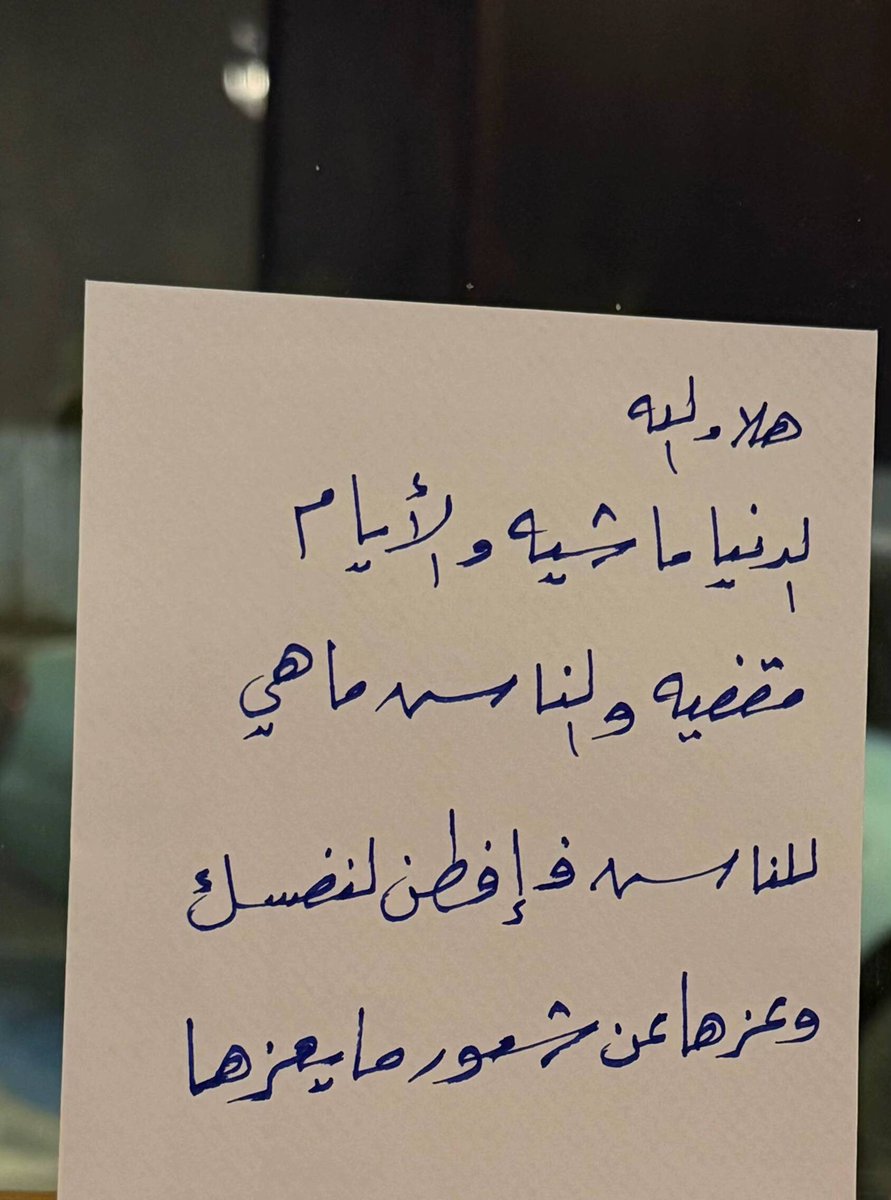 هلا والله
الدنيا ماشيه والأيام
مقفيه والناس ماهي
للناس فإفطن لنفسك
وعزها عن شعور مايعزها